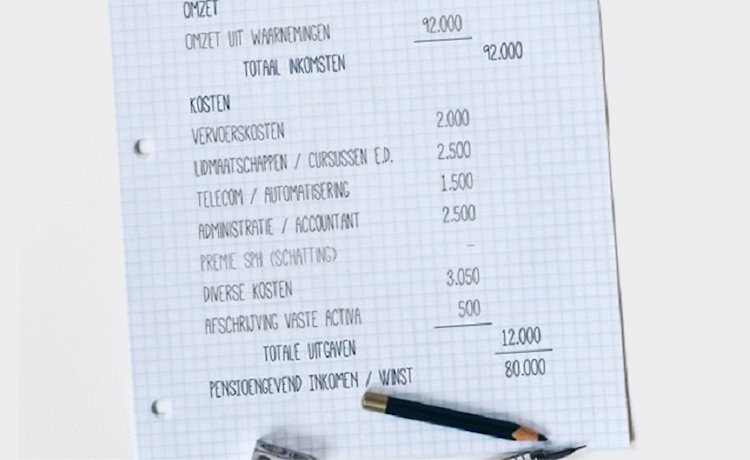 OMZET
OMZET UIT WAARNEMINGEN 92.000
TOTAAL INKOMSTEN 92.000
KOSTEN
VERVOERSKOSTEN 2.000
LIDMAATSCHAPPEN / CURSUSSEN E.D. 2.500
TELECOM / AUTOMATISERING 1.500
ADMINISTRATIE / ACCOUNTANT 2.500
PREMIE SPH (SCHATTING) -
DIVERSE KOSTEN 3.050
AFSCHRIJVING VASTE ACTIVA 500
TOTALE UITGAVEN 12.000
PENSIOENGEVEND INKOMEN / WINST 80.000